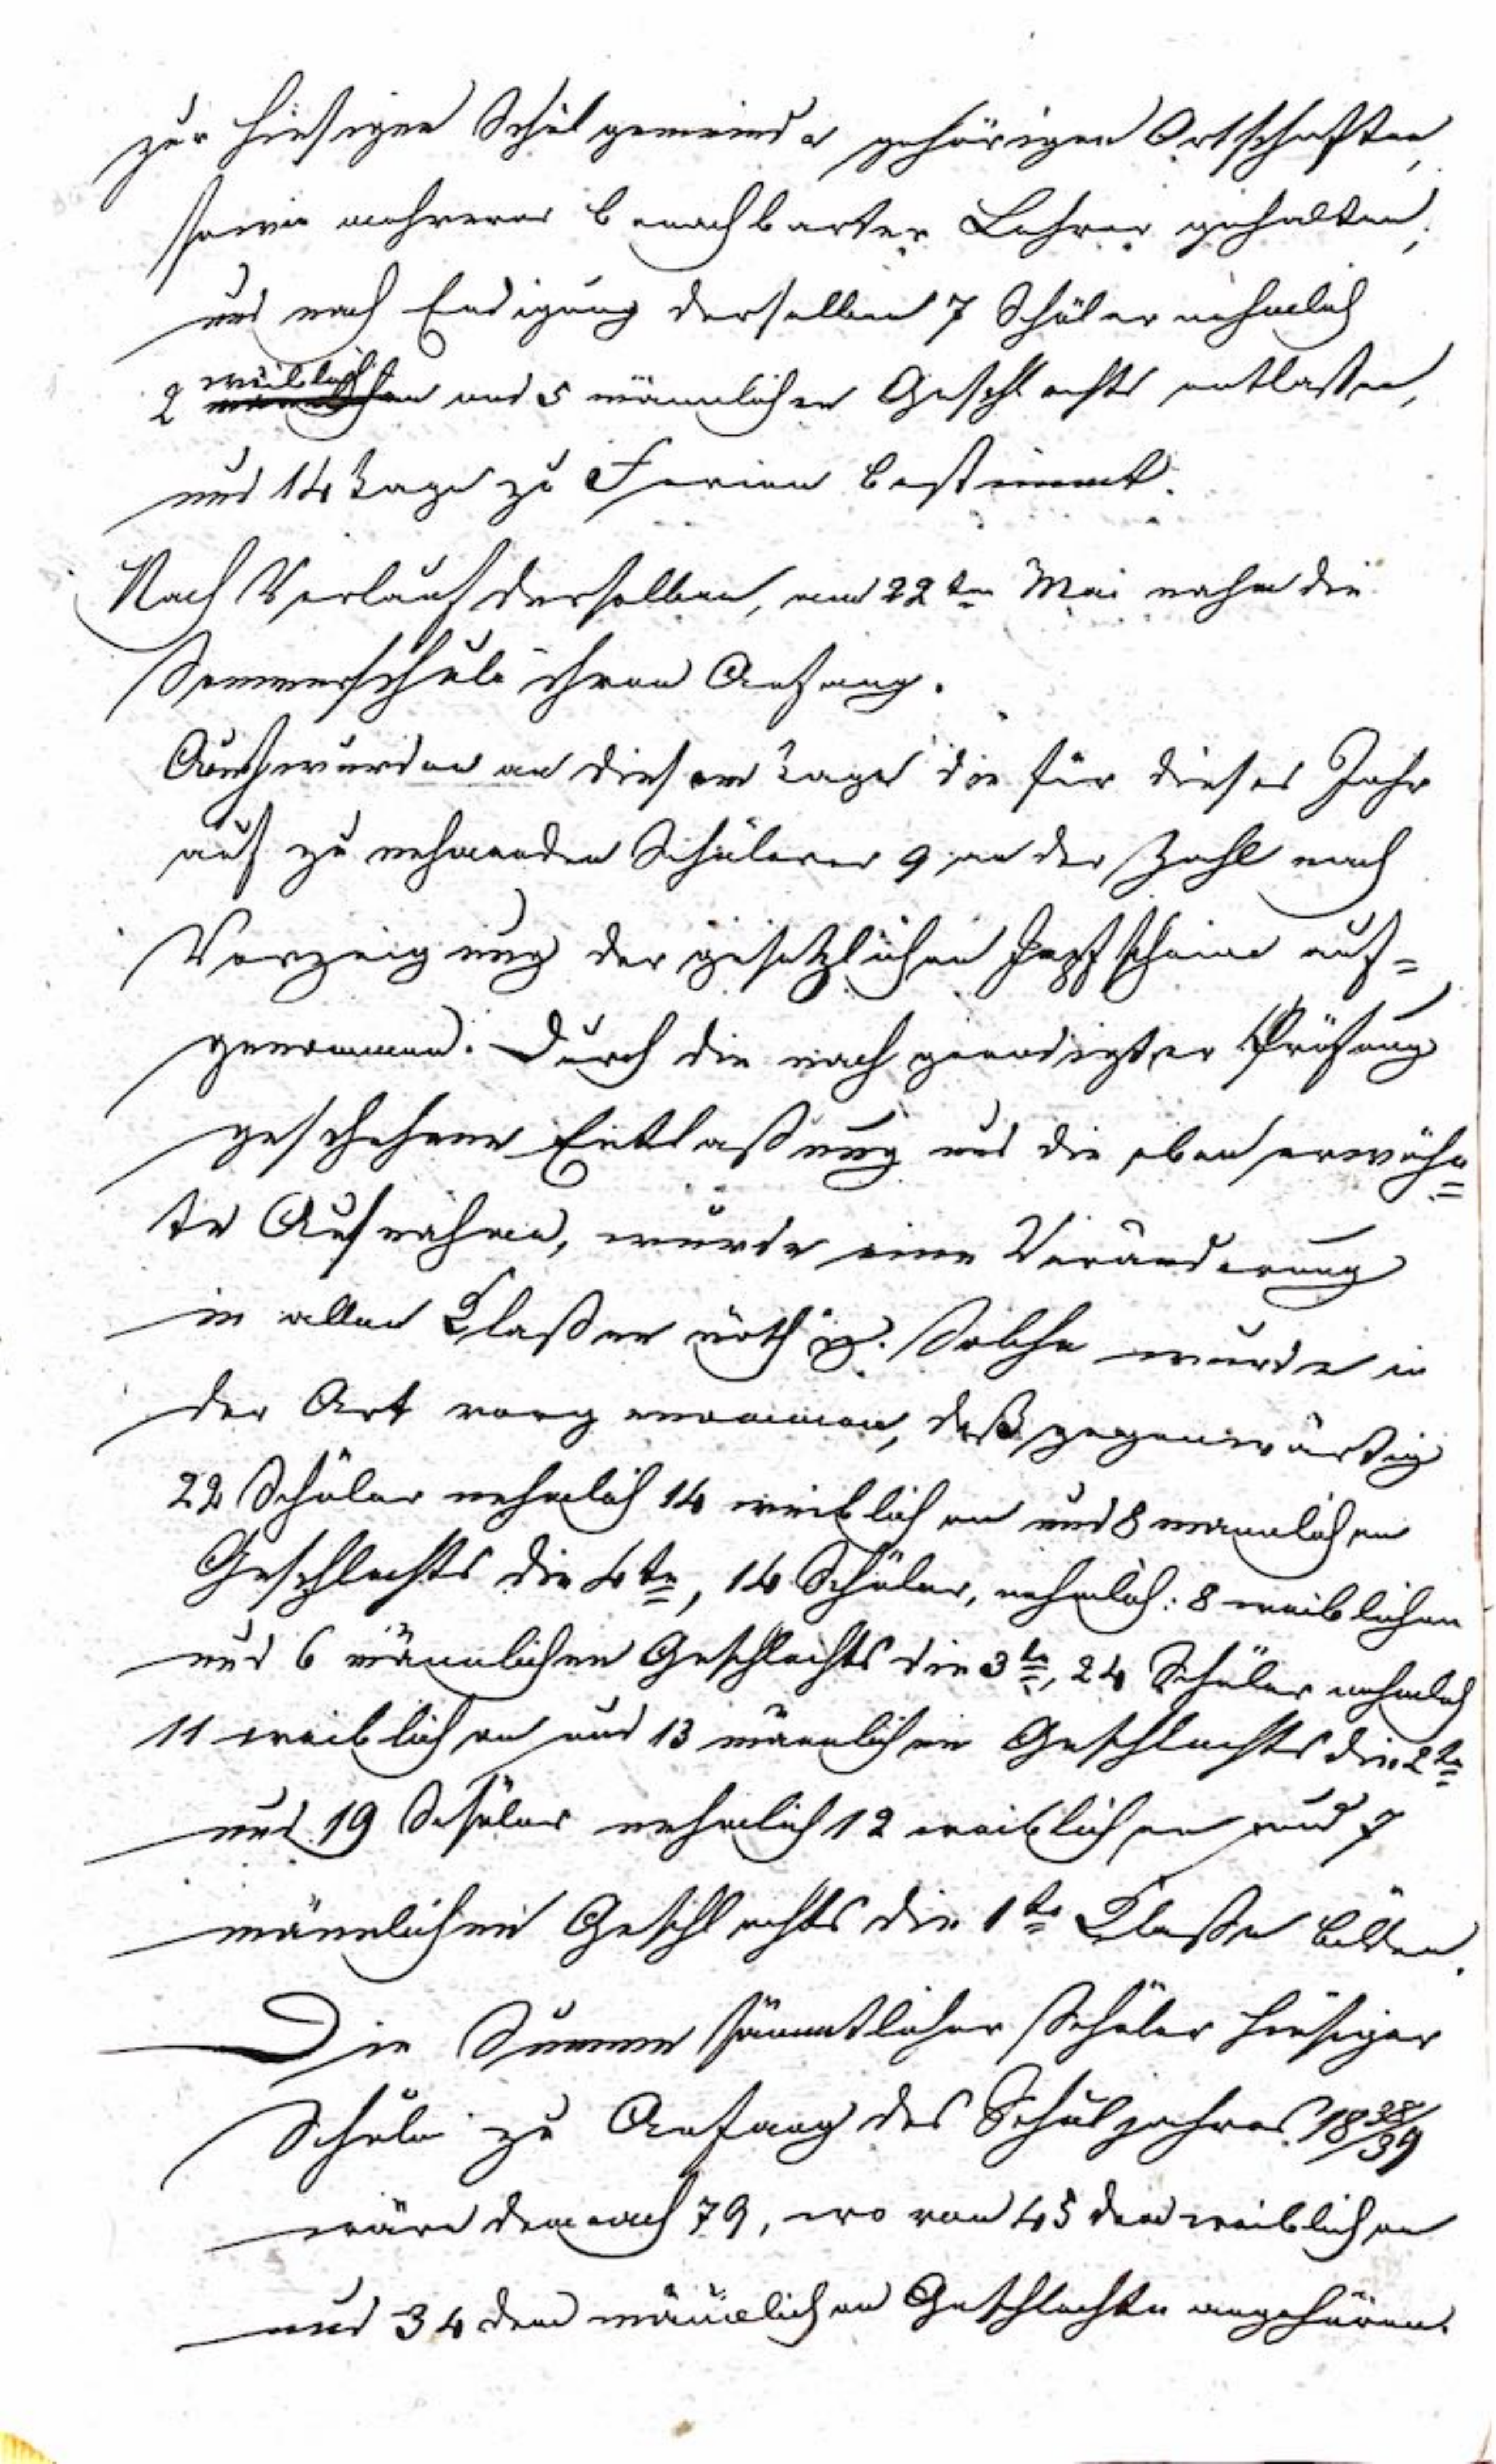 zur hiesigen Schulgemeinde gehörigen Ortschaften,
sowie mehrerer benachbarter Lehrer gehalten,
und nach Endigung derselben 7 Schüler nehmlich
2 weiblichen und 5 männlichen Geschlechts entlaßen,
und 14 Tage zu Ferien bestimmt.
Nach Verlauf derselben, am 22ten Mai nahm die
Sommerschule ihren Anfang.
Auch wurden an diesem Tage die für dieses Jahr
auf zu nehmenden Schülerer 9 an der Zahl nach
Vorzeigung der gesetzlichen Impfscheine auf=
genommen. Durch die nach geendigter Prüfung
geschehene Entlaßung und die eben erwähn=
te Aufnahme, wurde eine Veränderung
in allen Claßen nöthig. Solche wurde in
der Art vorgenommen, daß gegenwärtig
22 Schüler nehmlich 14 weiblichen und 8 mannlichen
Geschlechts die 4te, 14 Schüler, nehmlich: 8 weiblichen
und 6 männlichen Geschlechts die 3te, 24 Schüler nehmlich
11 weiblichen und 13 männlichen Geschlechts die 2te
und 19 Schüler nehmlich 12 weiblichen und 7
männlichen Geschlechts die 1te Claße bilden.
Die Summe sämmtlicher Schüler hiesiger
Schule zu Anfang des Schuljahres 1838/39
wäre demnach 79, wovon 45 dem weiblichen
und 34 dem männlichen Geschlechte angehören.